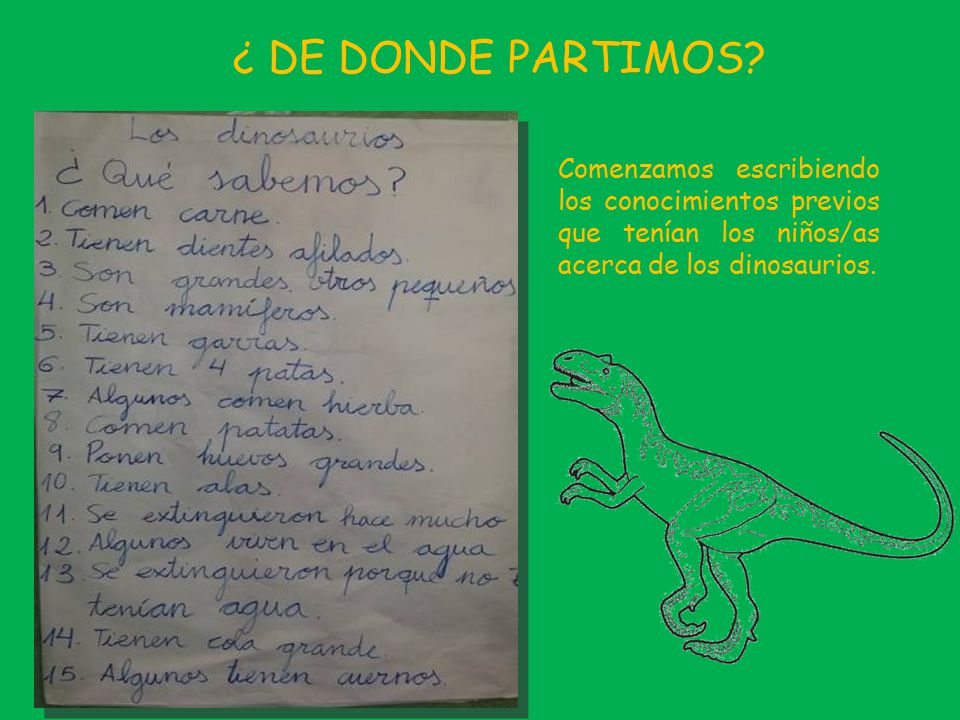 ¿ DE DONDE PARTIMOS?
Los dinosaurios
¿Qué sabemos?
1. Comen carne.
2. Tienen dientes afilados.
3. Son grandes. otros pequeños
4. Son mamíferos.
5. Tienen garras.
6. Tienen 4 patas.
7. Algunos comen hierba.
8. Comen patatas.
9. Ponen huevos grandes.
10. Tienen alas.
11. Se extinguieron hace mucho
12. Algunos viven en el agua
13 Se extinguieron porque no
tenían agua.
14. Tienen cola grande.
15. Algunos tienen cuernos.
Comenzamos escribiendo
los conocimientos previos
que tenían los niños/as
acerca de los dinosaurios.